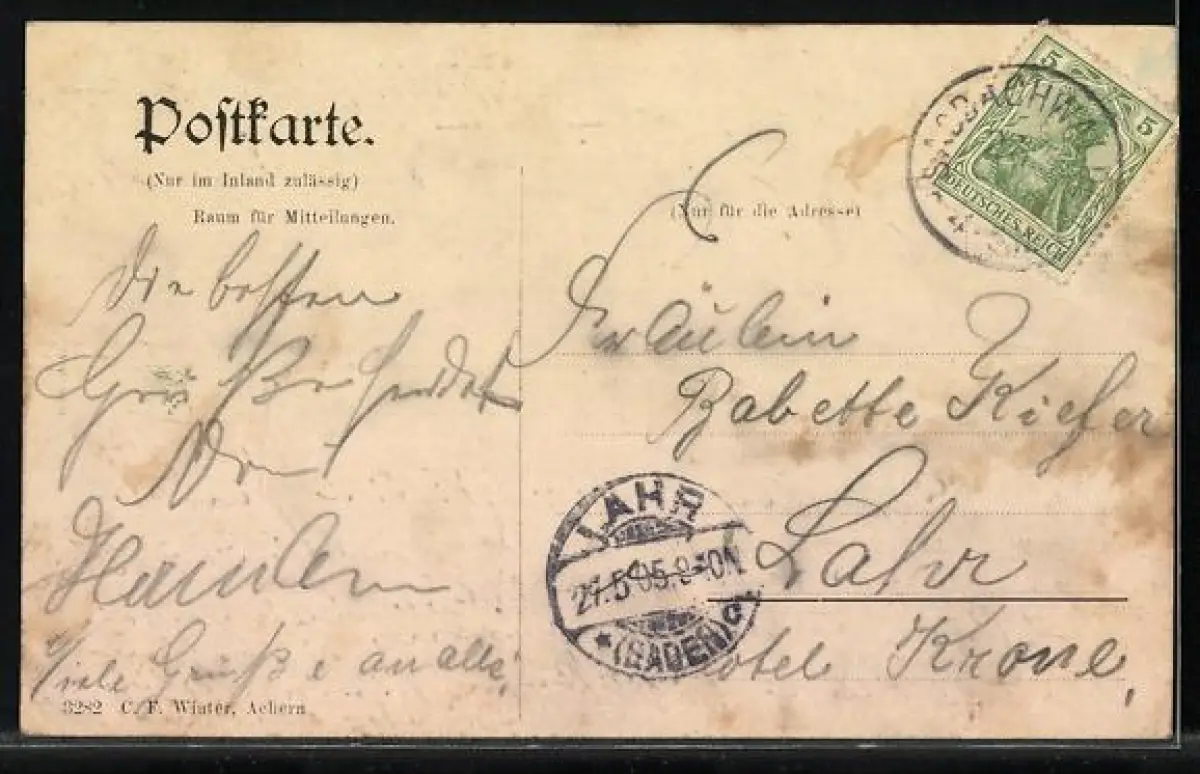 Postkarte.
(Nur im Inland zulässig)
Raum für Mitteilungen.
(Nur für die Adresse)
5
5
DEUTSCHES REICH
Die besten
Grüße sendet
Fräulein
Babette Kiefer
Lahr
Hotel Krone,
Viele Grüße an alle,
LAHR
27.5.05.8-
* (BADEN) a
3282 C. F. Winter, Achern